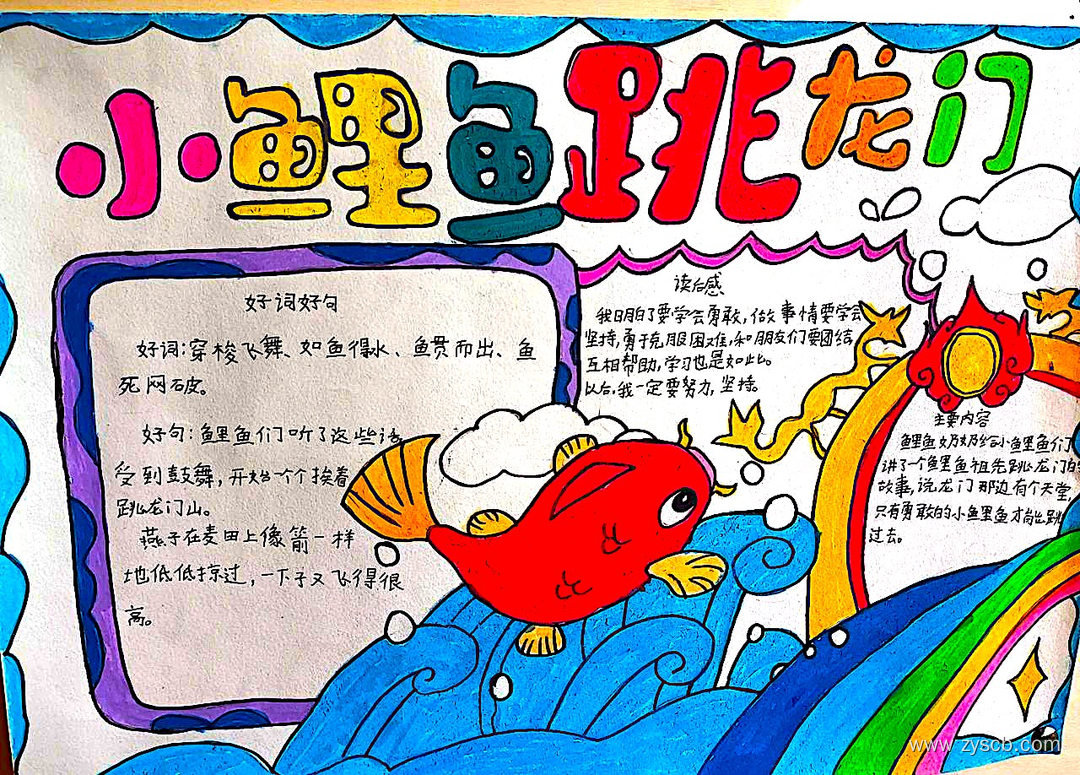 小鲤鱼跳龙门
好词好句
好词:穿梭飞舞、如鱼得水、鱼贯而出、鱼
死网破。
好句:鲤鱼们听了这些话
受到鼓舞,开始一个个挨着
跳龙门山。
燕子在麦田上像箭一样
地低低掠过,一下子又飞得很
高。
读后感
我明白了要学会勇敢,做事情要学会
坚持,勇于克服困难,和朋友们要团结
互相帮助,学习也是如此。
以后,我一定要努力,坚持。
主要内容
鲤鱼奶奶给小鲤鱼们
讲了一个鲤鱼祖先跳龙门的
故事,说龙门那边有个天堂,
只有勇敢的小鲤鱼才能跳
过去。
www.zyscb.com